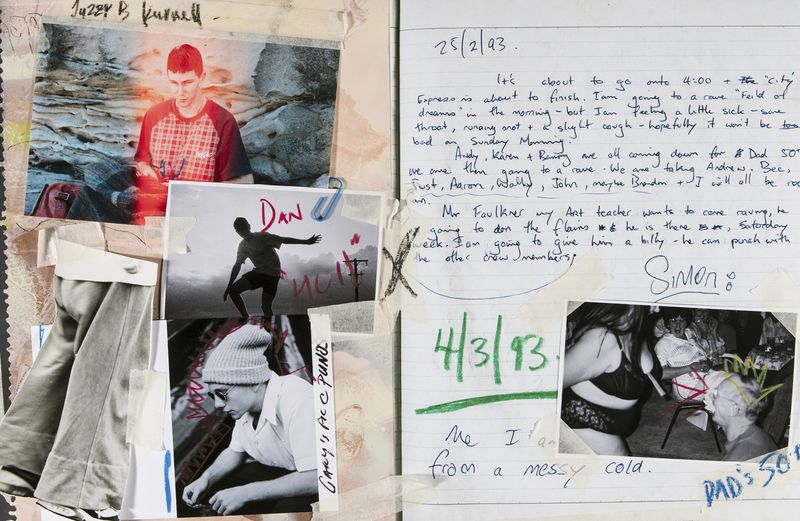 Jazzy B Kurnell -
DAN
"HUIT"
GARY'S ACC PUNK
25/2/93.
It's about to go onto 4:00 + "City
Express is about to finish. I am going to a rave "Feild of
dreams" in the morning - but I am feeling a little sick - sore
throat, running nose + a slight cough - hopefully it won't be too
bad on Sunday Morning.
Andy, Karen + are all coming down for Dad 50th
we are then going to a rave. We are taking Andrew, Bec,
Just, Aaron, Wally, John, maybe Brandon + I will all be
in.
Mr Faulkner my Art teacher wants to come raving, he
going to don the flairs he is there Saturday
week. I am going to give him a billy - he can punch with
the other crew members.
Simon
4/3/93.
Me I
from a messy cold.
DAD'S 50th